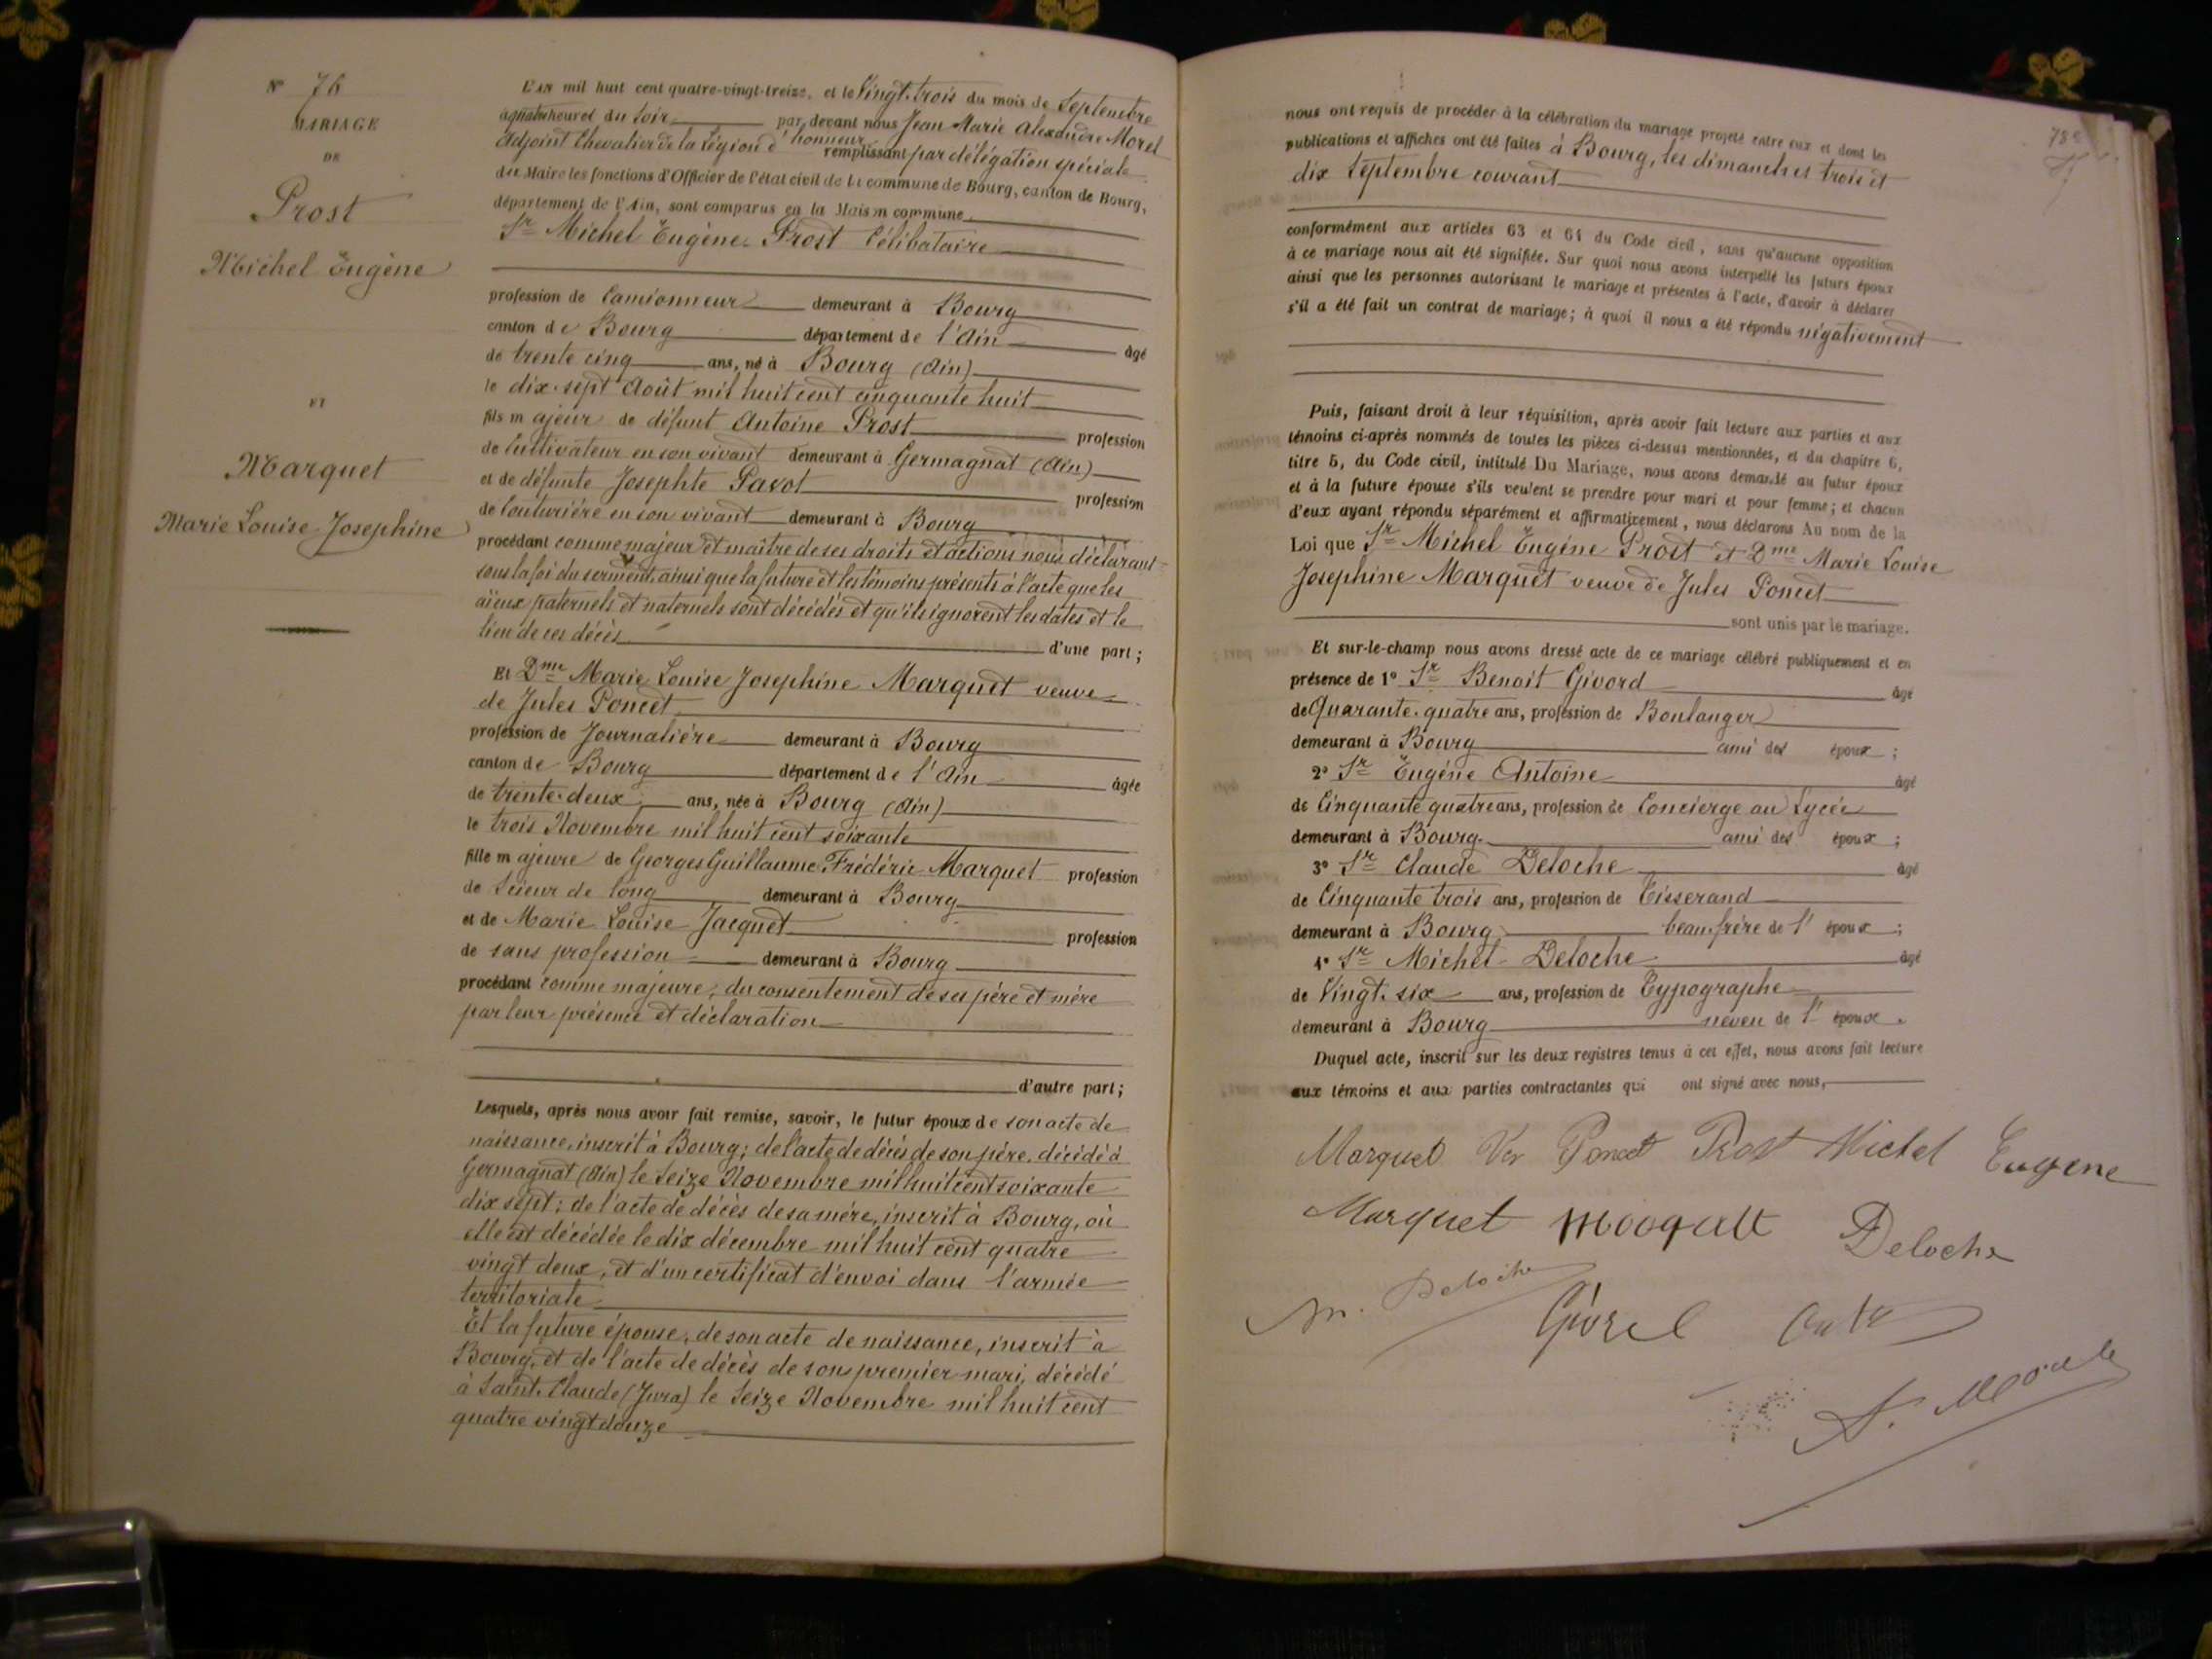 N° 76
MARIAGE
DE
Prost
Michel Eugène
ET
Marquet
Marie Louise Josephine
L'AN mil huit cent quatre-vingt-treize, et le Vingt-trois du mois de Septembre
à quatre heures du soir par devant nous Jean Marie Alexandre Morel
Adjoint Chevalier de la Légion d'honneur remplissant par délégation spéciale
du Maire les fonctions d'Officier de l'état civil de la commune de Bourg, canton de Bourg,
département de l'Ain, sont comparus en la Maison commune
Sr Michel Eugène Prost Célibataire
profession de Camionneur demeurant à Bourg
canton de Bourg département de l'Ain âgé
de trente cinq ans, né à Bourg (Ain)
le dix-sept Août mil huit cent cinquante huit
fils majeur de défunt Antoine Prost profession
de Cultivateur en son vivant demeurant à Germagnat (Ain)
et de défunte Josephte Pavot profession
de Couturière en son vivant demeurant à Bourg
procédant comme majeur et maître de ses droits et actions nous déclarant
sous la foi du serment, ainsi que la future et les témoins présents à l'acte que les
aïeux paternels et maternels sont décédés et qu'ils ignorent les dates et le
lieu de ces décès d'une part;
Et Dme Marie Louise Josephine Marquet veuve
de Jules Poncet
profession de Journalière demeurant à Bourg
canton de Bourg département de l'Ain âgée
de trente-deux ans, née à Bourg (Ain)
le trois Novembre mil huit cent soixante
fille majeure de Georges Guillaume Frédéric Marquet profession
de Scieur de long demeurant à Bourg
et de Marie Louise Jacquet profession
de sans profession demeurant à Bourg
procédant comme majeure, du consentement de ses père et mère
par leur présence et déclaration
d'autre part;
Lesquels, après nous avoir fait remise, savoir, le futur époux de son acte de
naissance, inscrit à Bourg; de l'acte de décès de son père, décédé à
Germagnat (Ain) le Seize Novembre mil huit cent soixante
dix sept; de l'acte de décès de sa mère, inscrit à Bourg, où
elle est décédée le dix décembre mil huit cent quatre
vingt deux, et d'un certificat d'envoi dans l'armée
territoriale
Et la future épouse, de son acte de naissance, inscrit à
Bourg, et de l'acte de décès de son premier mari, décédé
à Saint-Claude (Jura) le Seize Novembre mil huit cent
quatre vingt douze
nous ont requis de procéder à la célébration du mariage projeté entre eux et dont les
publications et affiches ont été faites à Bourg, les dimanches trois et
dix Septembre courant
conformément aux articles 63 et 64 du Code civil, sans qu'aucune opposition
à ce mariage nous ait été signifiée. Sur quoi nous avons interpellé les futurs époux
ainsi que les personnes autorisant le mariage et présentes à l'acte, d'avoir à déclarer
s'il a été fait un contrat de mariage; à quoi il nous a été répondu négativement
Puis, faisant droit à leur réquisition, après avoir fait lecture aux parties et aux
témoins ci-après nommés de toutes les pièces ci-dessus mentionnées, et du chapitre 6,
titre 5, du Code civil, intitulé Du Mariage, nous avons demandé au futur époux
et à la future épouse s'ils veulent se prendre pour mari et pour femme; et chacun
d'eux ayant répondu séparément et affirmativement, nous déclarons Au nom de la
Loi que Sr Michel Eugène Prost et Dme Marie Louise
Josephine Marquet veuve de Jules Poncet
sont unis par le mariage.
Et sur-le-champ nous avons dressé acte de ce mariage célébré publiquement et en
présence de 1° Sr Benoit Givord âgé
de Quarante-quatre ans, profession de Boulanger
demeurant à Bourg ami des époux;
2° Sr Eugène Antoine âgé
de Cinquante quatre ans, profession de Concierge au Lycée
demeurant à Bourg ami des époux;
3° Sr Claude Deloche âgé
de Cinquante trois ans, profession de Tisserand
demeurant à Bourg beau-frère de l'époux;
4° Sr Michel Deloche âgé
de Vingt-six ans, profession de Typographe
demeurant à Bourg neveu de l'époux.
Duquel acte, inscrit sur les deux registres tenus à cet effet, nous avons fait lecture
aux témoins et aux parties contractantes qui ont signé avec nous,
Marquet Ve Poncet Prost Michel Eugene
Marquet Deloche
M. Deloche